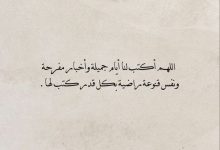 اللهم أكتب لنا أيام جميلة وأخبار مفرحة
ونفس قنوعة راضية بكل قدر كتب لها .